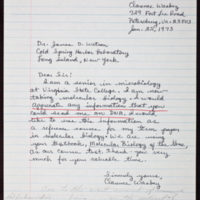 Clarence Wesley
Petersburg, Va. 23803
Jan. 25, 1973
Dr. James D. Watson
Cold Spring Harbor Laboratory
Long Island, New York.
Dear Sir:
I am a senior in microbiology
at Virginia State College. I am now
taking molecular biology. I would
appreciate any information that you
could send me on DNA. I would
like to use the information as
a reference source for my term paper
in molecular biology. We are using
your textbook, Molecular Biology of the Gene,
in our course. Thank you very
much for your valuable time.
Sincerely yours,
Clarence Wesley